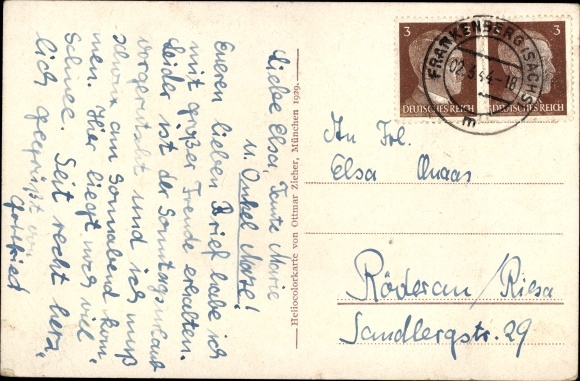 Liebe Elsa, Tante Marie
u. Onkel Maze!
Eueren lieben Brief habe ich
mit großer Freude erhalten.
Leider ist der Sonntagsurlaub
vorgerutscht und ich muß
schon am Sonnabend kom-
men. Hier liegt noch viel
Schnee. Seid recht herz-
lich gegrüßt von
Gottfried
Heliocolorkarte von Ottmar Zieher, München 1929.
3
3
DEUTSCHES REICH
DEUTSCHES REICH
FRANKENBERG (SACHS)
02.3.44-18
m
An Frl.
Elsa Quaas
Röderau/Riesa
Sandbergstr. 29